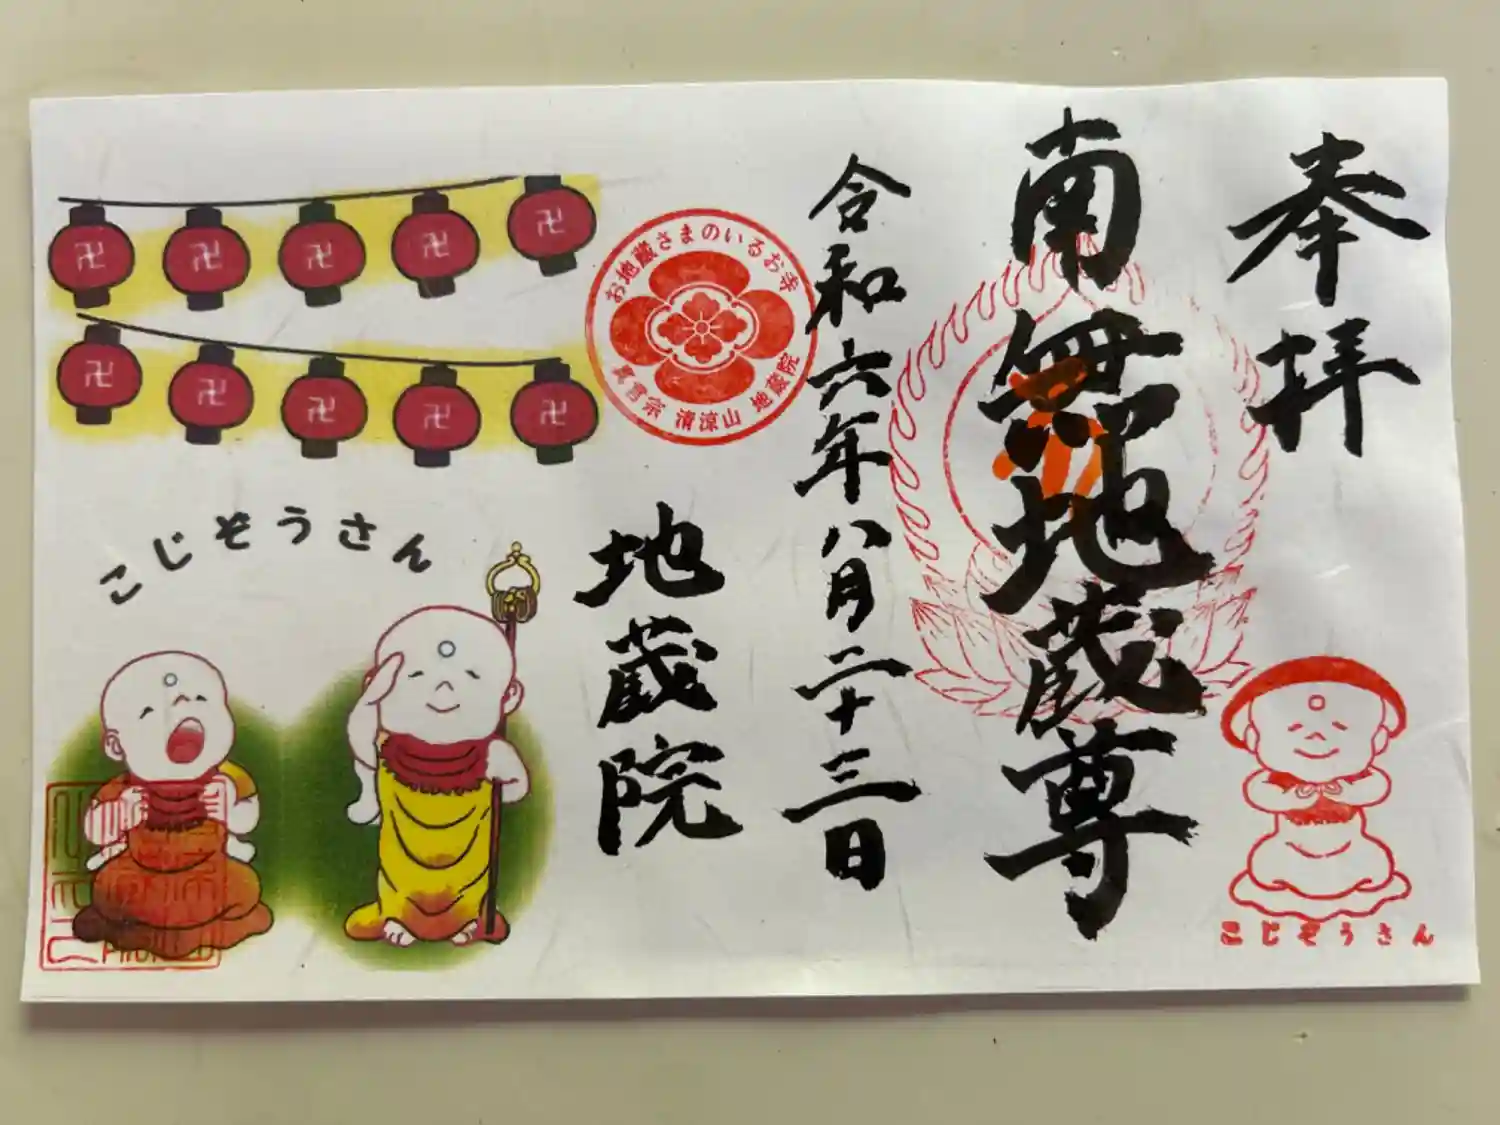 奉拝
南無地蔵尊
令和六年八月二十三日
地蔵院
お地蔵さまのいるお寺
真言宗 清涼山 地蔵院
こじぞうさん
こじぞうさん
卍 卍 卍 卍 卍
卍 卍 卍 卍 卍